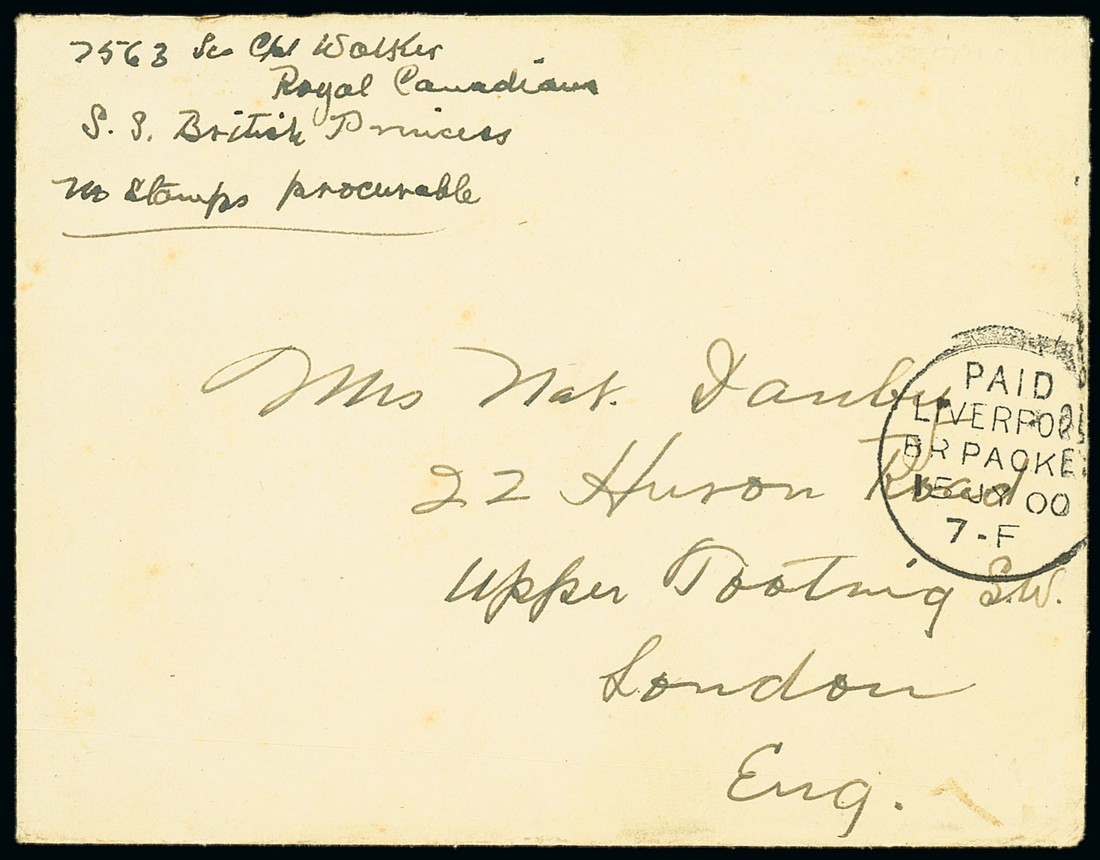 7563 Sc Cpl Walker
Royal Canadians
S. S. British Princess
No Stamps procurable
Mrs Nat. Danby
22 Huron Road
Upper Tooting S.W.
London
Eng.
PAID
LIVERPOOL
BR PACKE
15 JY 00
7-F